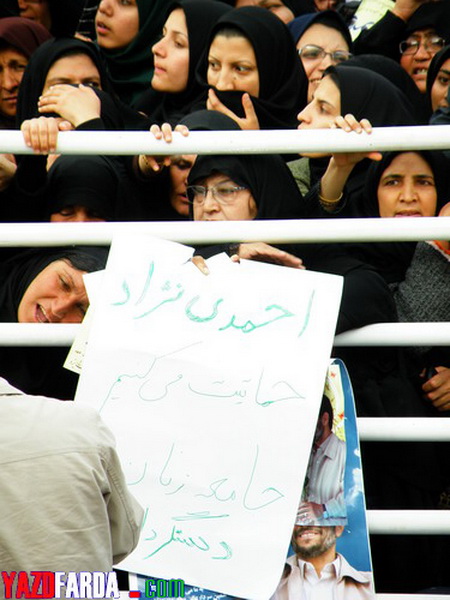 احمدی نژاد
حمایت می کنیم
جامعه زنان
دستگردا
YAZDFARDA.com